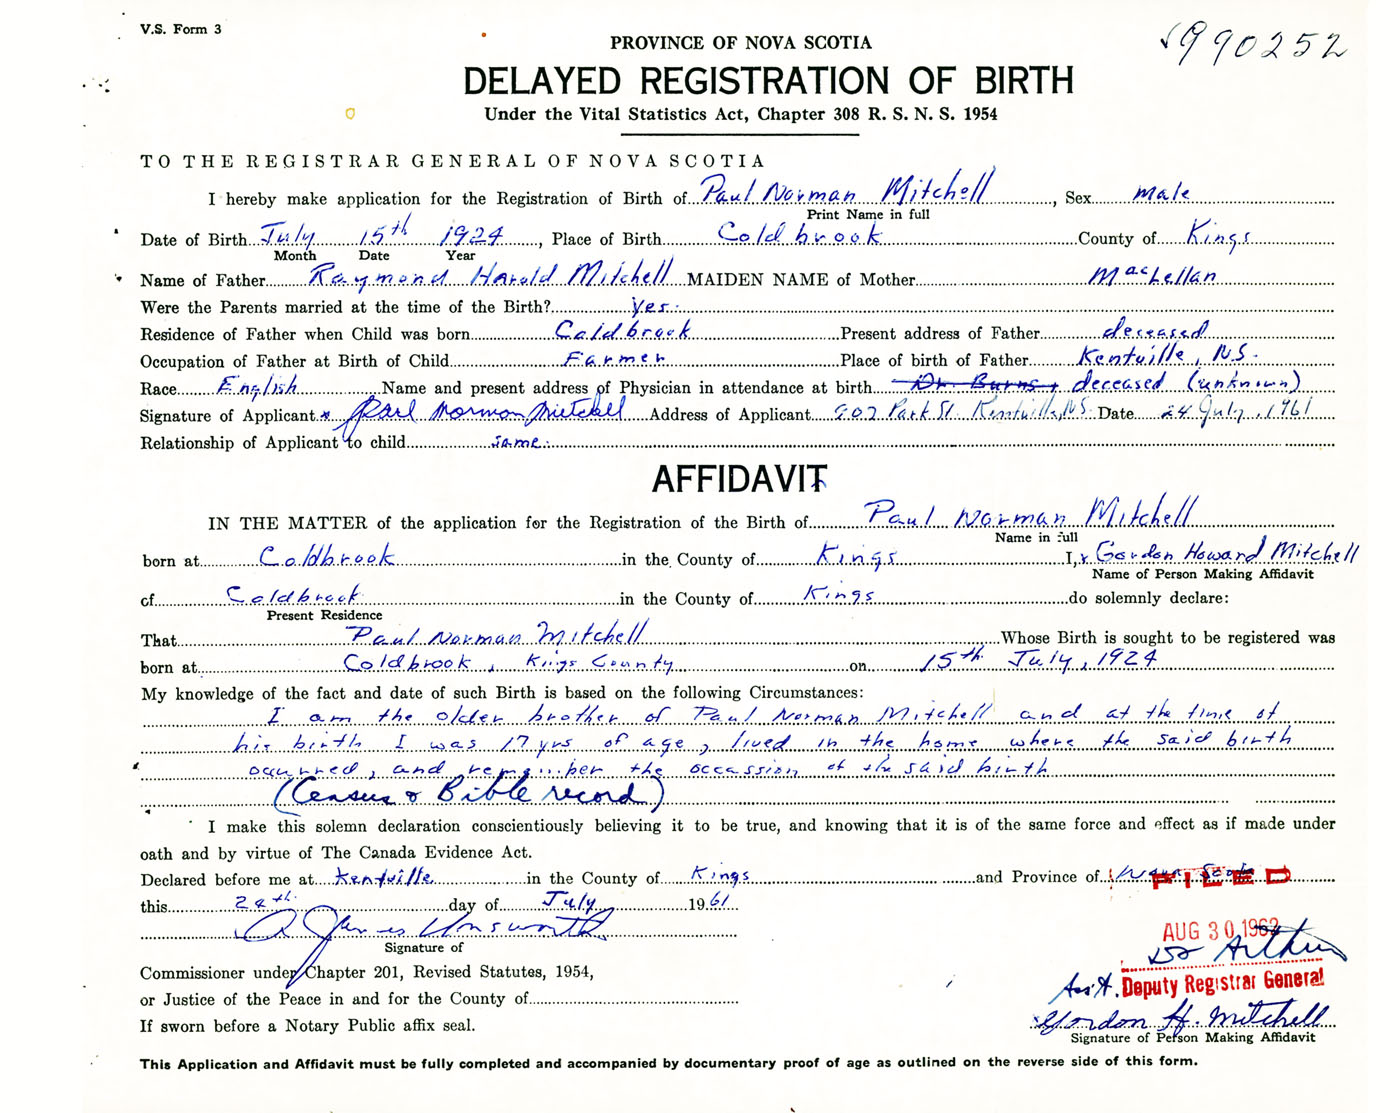 V.S. Form 3
990252
PROVINCE OF NOVA SCOTIA
DELAYED REGISTRATION OF BIRTH
Under the Vital Statistics Act, Chapter 308 R. S. N. S. 1954
TO THE REGISTRAR GENERAL OF NOVA SCOTIA
I hereby make application for the Registration of Birth of Paul Norman Mitchell, Sex male
Print Name in full
Date of Birth July 15th 1924, Place of Birth Coldbrook County of Kings
Month Date Year
Name of Father Raymond Harold Mitchell MAIDEN NAME of Mother MacLellan
Were the Parents married at the time of the Birth? Yes.
Residence of Father when Child was born Coldbrook Present address of Father deceased
Occupation of Father at Birth of Child Farmer Place of birth of Father Kentville, N.S.
Race English Name and present address of Physician in attendance at birth Dr. Burns, deceased (unknown)
Signature of Applicant x Paul Norman Mitchell Address of Applicant 902 Park St. Kentville, NS. Date 24 July, 1961
Relationship of Applicant to child same.
AFFIDAVIT
IN THE MATTER of the application for the Registration of the Birth of Paul Norman Mitchell
Name in full
born at Coldbrook in the County of Kings I, x Gordon Howard Mitchell
Name of Person Making Affidavit
of Coldbrook in the County of Kings do solemnly declare:
Present Residence
That Paul Norman Mitchell Whose Birth is sought to be registered was
born at Coldbrook, Kings County on 15th July, 1924
My knowledge of the fact and date of such Birth is based on the following Circumstances:
I am the older brother of Paul Norman Mitchell and at the time of
his birth I was 17 yrs of age, lived in the home where the said birth
occurred, and remember the occassion of the said birth
(Census & Bible record)
I make this solemn declaration conscientiously believing it to be true, and knowing that it is of the same force and effect as if made under
oath and by virtue of The Canada Evidence Act.
Declared before me at Kentville in the County of Kings and Province of Nova Scotia
FILED
this 24th day of July 1961
AUG 30 1962
Signature of
Commissioner under Chapter 201, Revised Statutes, 1954,
Asst. Deputy Registrar General
or Justice of the Peace in and for the County of
Gordon H. Mitchell
If sworn before a Notary Public affix seal.
Signature of Person Making Affidavit
This Application and Affidavit must be fully completed and accompanied by documentary proof of age as outlined on the reverse side of this form.